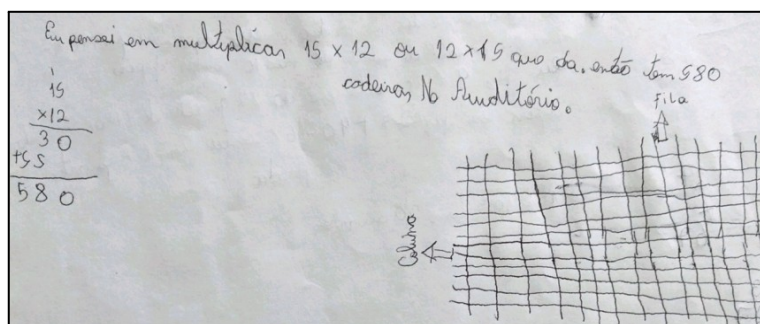 Eu pensei em multiplicar 15 x 12 ou 12 x 15 que da. então tem 580
cadeiras No Auditório.
1
15
x12
30
+55
580
Fila
Coluna